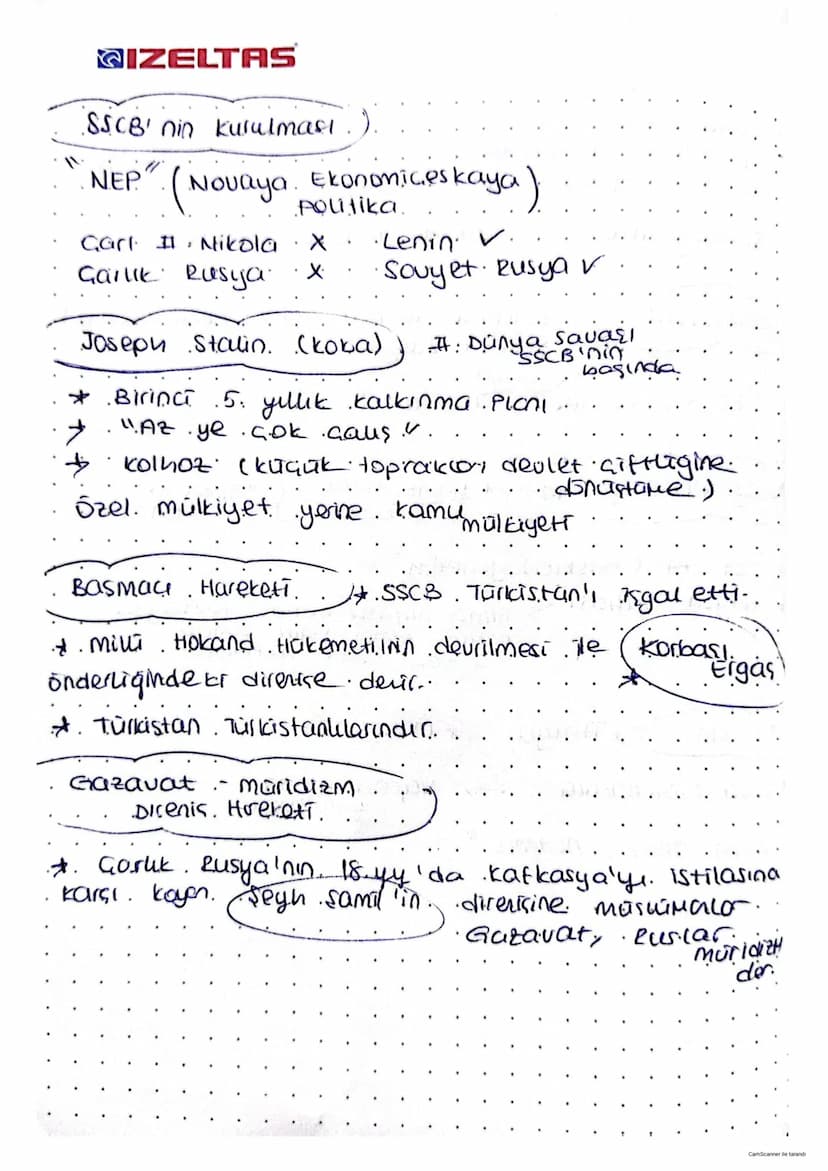 IZELTAS
SSCB'nin kurulması
"NEP" (Novaya Ekonomiçeskaya
Politika)
Çarl II. Nikola X Lenin ✓
Çarlık Rusya X Sovyet Rusya ✓
Joseph Stalin (Koba) II. Dünya Savaşı
SSCB'nin
başında
* Birinci 5 yıllık kalkınma planı
* "Az ye çok çalış"
* Kolhoz (küçük toprakları devlet çiftliğine
dönüştürme)
Özel mülkiyet yerine kamu
mülkiyeti
Basmacı Hareketi * SSCB Türkistan'ı işgal etti.
* Milli Hokand Hükümetinin devrilmesi ile Korbaşı
Ergaş
önderliğindeki direnişe denir.
* Türkistan Türkistanlılarındır.
Gazavat - müridizm
Direniş Hareketi
* Çarlık Rusya'nın 18.yy'da Kafkasya'yı istilasına
karşı Şeyh Şamil'in direnişine müslümanlar
Gazavat, Ruslar
müridizm
der.
CamScanner ile tarandı